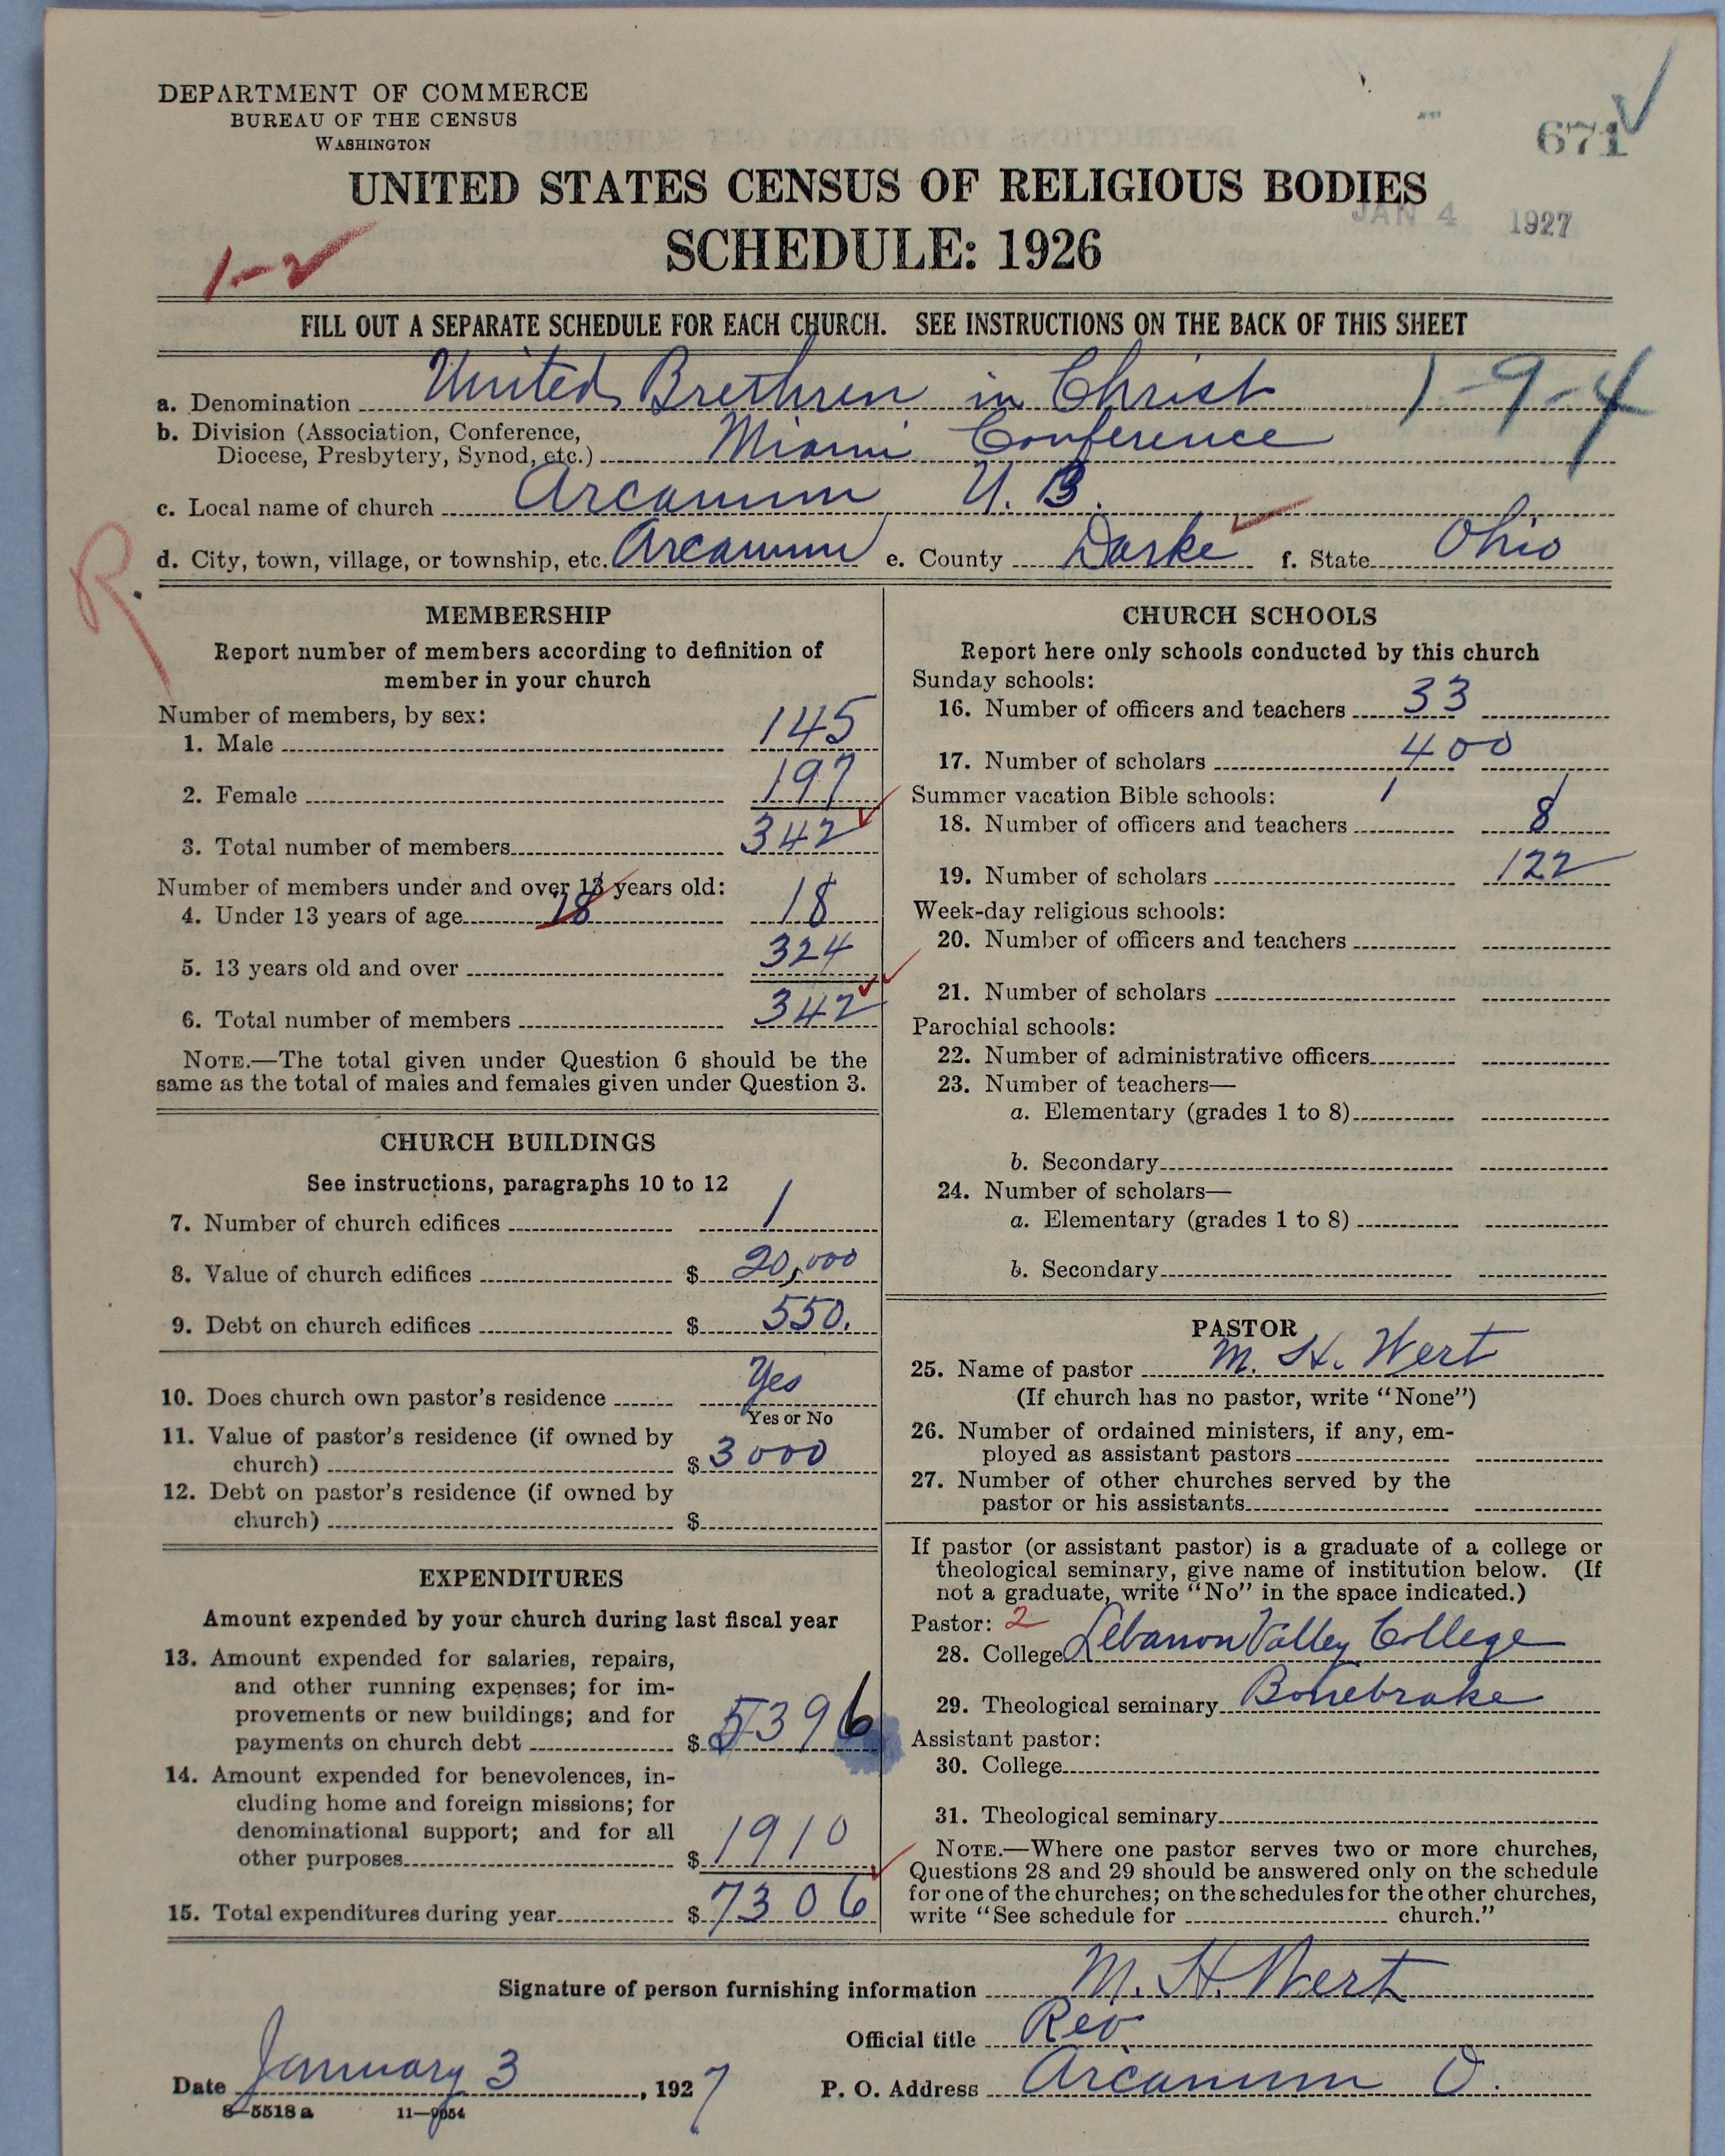 DEPARTMENT OF COMMERCE
BUREAU OF THE CENSUS
WASHINGTON
671
UNITED STATES CENSUS OF RELIGIOUS BODIES
JAN 4 1927
SCHEDULE: 1926
1-2
FILL OUT A SEPARATE SCHEDULE FOR EACH CHURCH. SEE INSTRUCTIONS ON THE BACK OF THIS SHEET
a. Denomination United Brethren in Christ 1-9-4
b. Division (Association, Conference,
Diocese, Presbytery, Synod, etc.) Miami Conference
c. Local name of church Arcanum U. B.
d. City, town, village, or township, etc. Arcanum e. County Darke f. State Ohio
R.
MEMBERSHIP
Report number of members according to definition of
member in your church
Number of members, by sex:
1. Male 145
2. Female 197
3. Total number of members 342
Number of members under and over 13 years old:
4. Under 13 years of age 18 18
5. 13 years old and over 324
6. Total number of members 342
NOTE.—The total given under Question 6 should be the
same as the total of males and females given under Question 3.
CHURCH BUILDINGS
See instructions, paragraphs 10 to 12
7. Number of church edifices 1
8. Value of church edifices $ 20,000
9. Debt on church edifices $ 550.
10. Does church own pastor's residence Yes
Yes or No
11. Value of pastor's residence (if owned by
church) $ 3000
12. Debt on pastor's residence (if owned by
church) $
EXPENDITURES
Amount expended by your church during last fiscal year
13. Amount expended for salaries, repairs,
and other running expenses; for im-
provements or new buildings; and for
payments on church debt $ 5396
14. Amount expended for benevolences, in-
cluding home and foreign missions; for
denominational support; and for all
other purposes $ 1910
15. Total expenditures during year $ 7306
CHURCH SCHOOLS
Report here only schools conducted by this church
Sunday schools:
16. Number of officers and teachers 33
17. Number of scholars 400
Summer vacation Bible schools:
18. Number of officers and teachers 8
19. Number of scholars 122
Week-day religious schools:
20. Number of officers and teachers
21. Number of scholars
Parochial schools:
22. Number of administrative officers
23. Number of teachers—
a. Elementary (grades 1 to 8)
b. Secondary
24. Number of scholars—
a. Elementary (grades 1 to 8)
b. Secondary
PASTOR
25. Name of pastor M. H. Wert
(If church has no pastor, write "None")
26. Number of ordained ministers, if any, em-
ployed as assistant pastors
27. Number of other churches served by the
pastor or his assistants
If pastor (or assistant pastor) is a graduate of a college or
theological seminary, give name of institution below. (If
not a graduate, write "No" in the space indicated.)
Pastor: 2
28. College Lebanon Valley College
29. Theological seminary Bonebrake
Assistant pastor:
30. College
31. Theological seminary
NOTE.—Where one pastor serves two or more churches,
Questions 28 and 29 should be answered only on the schedule
for one of the churches; on the schedules for the other churches,
write "See schedule for church."
Signature of person furnishing information M. H. Wert
Official title Rev
Date January 3, 1927 P. O. Address Arcanum O.
8—5518 a 11—9054